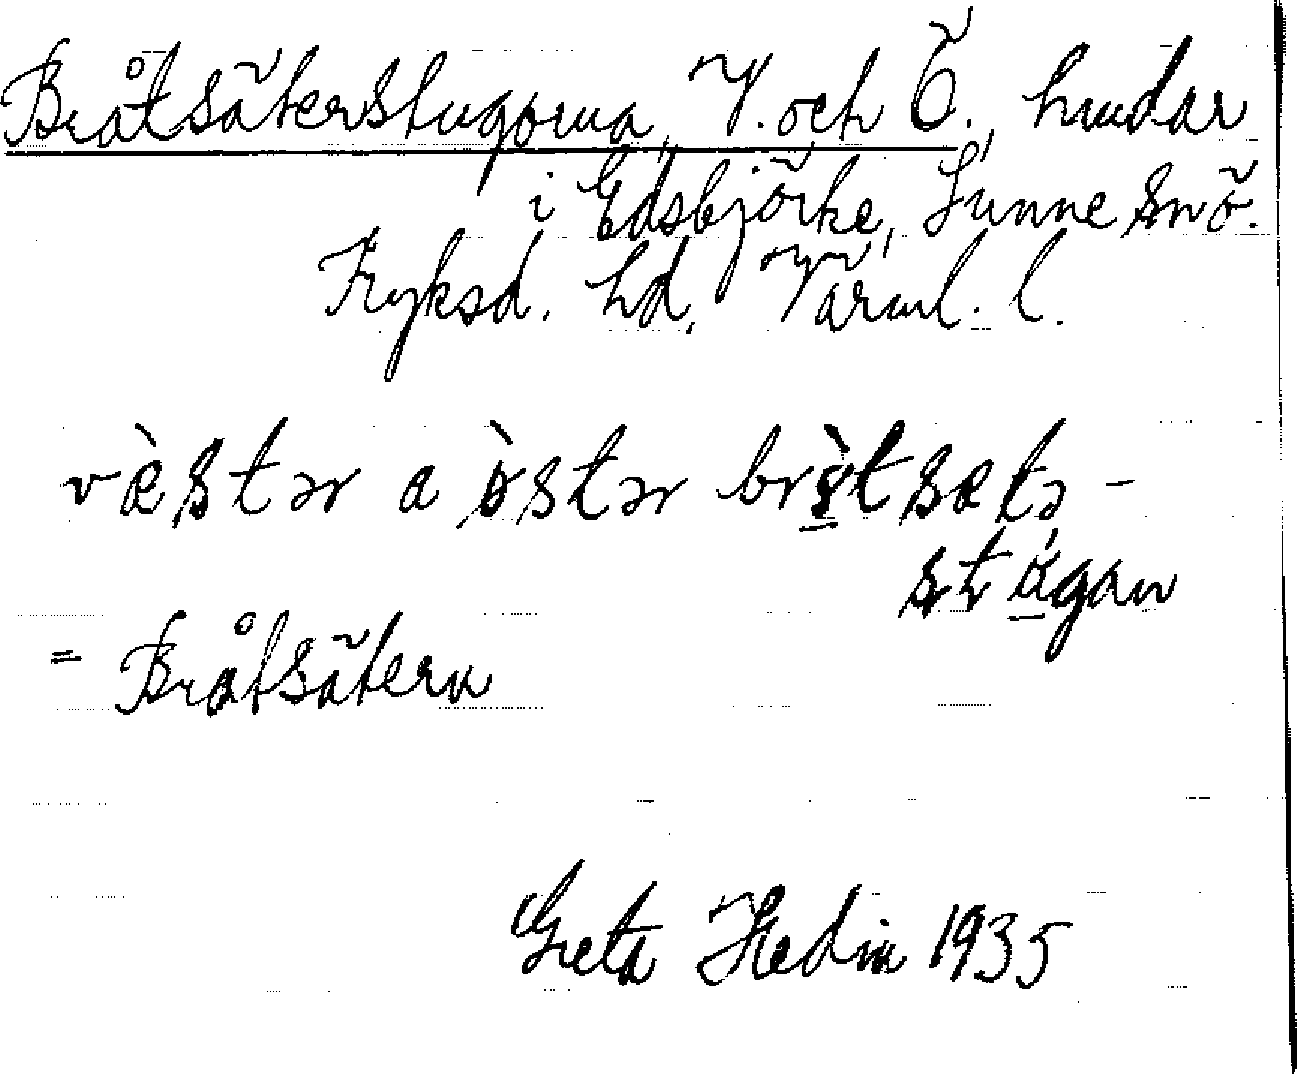 Bråtsäterstugorna, V. och Ö., lindar
i Edsbjörke, Sunne snö.
Fryksd. hd, Värml. l.
væ̀stər a ø̀stər brò̱tsætə-
stó̱gan
= Bråtsätern
Greta Hedin 1935